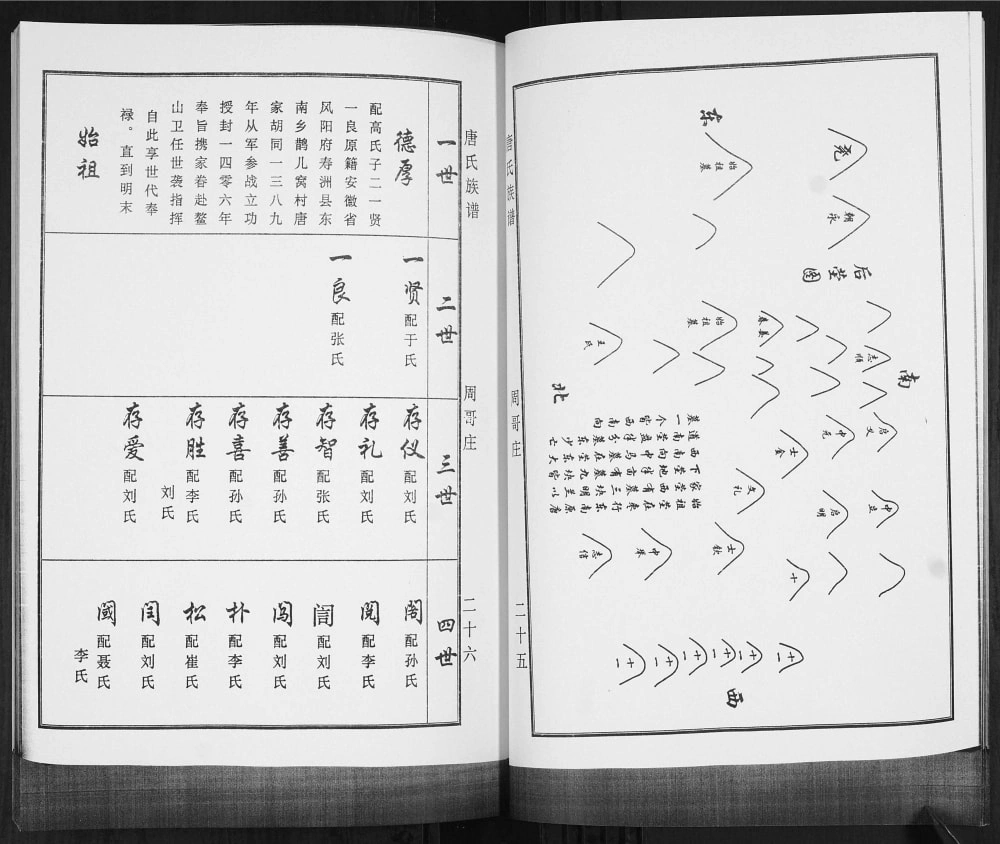 东
南
西
北
后茔图
始祖墓
尧
朝永
始祖墓
秦姜
王氏
志顺
启文
中尧
士金
文礼
中立
启明
士钦
中举
志信
十
十一
十一
十一
十一
十一
十一
唐氏族谱
周哥庄
二十五
唐氏族谱
周哥庄
二十六
一世
德厚
配高氏子二一贤
一良原籍安徽省
风阳府寿洲县东
南乡鹊儿窝村唐
家胡同一三八九
年从军参战立功
授封一四零六年
奉旨携家眷赴鳌
山卫任世袭指挥
自此享世代奉
禄。直到明末
始祖
二世
一贤 配于氏
一良 配张氏
三世
存仪 配刘氏
存礼 配刘氏
存智 配张氏
存善 配孙氏
存喜 配孙氏
存胜 配李氏
刘氏
存爱 配刘氏
四世
阁 配孙氏
阅 配李氏
訚 配刘氏
闯 配刘氏
朴 配李氏
松 配崔氏
闫 配刘氏
阈 配聂氏
李氏